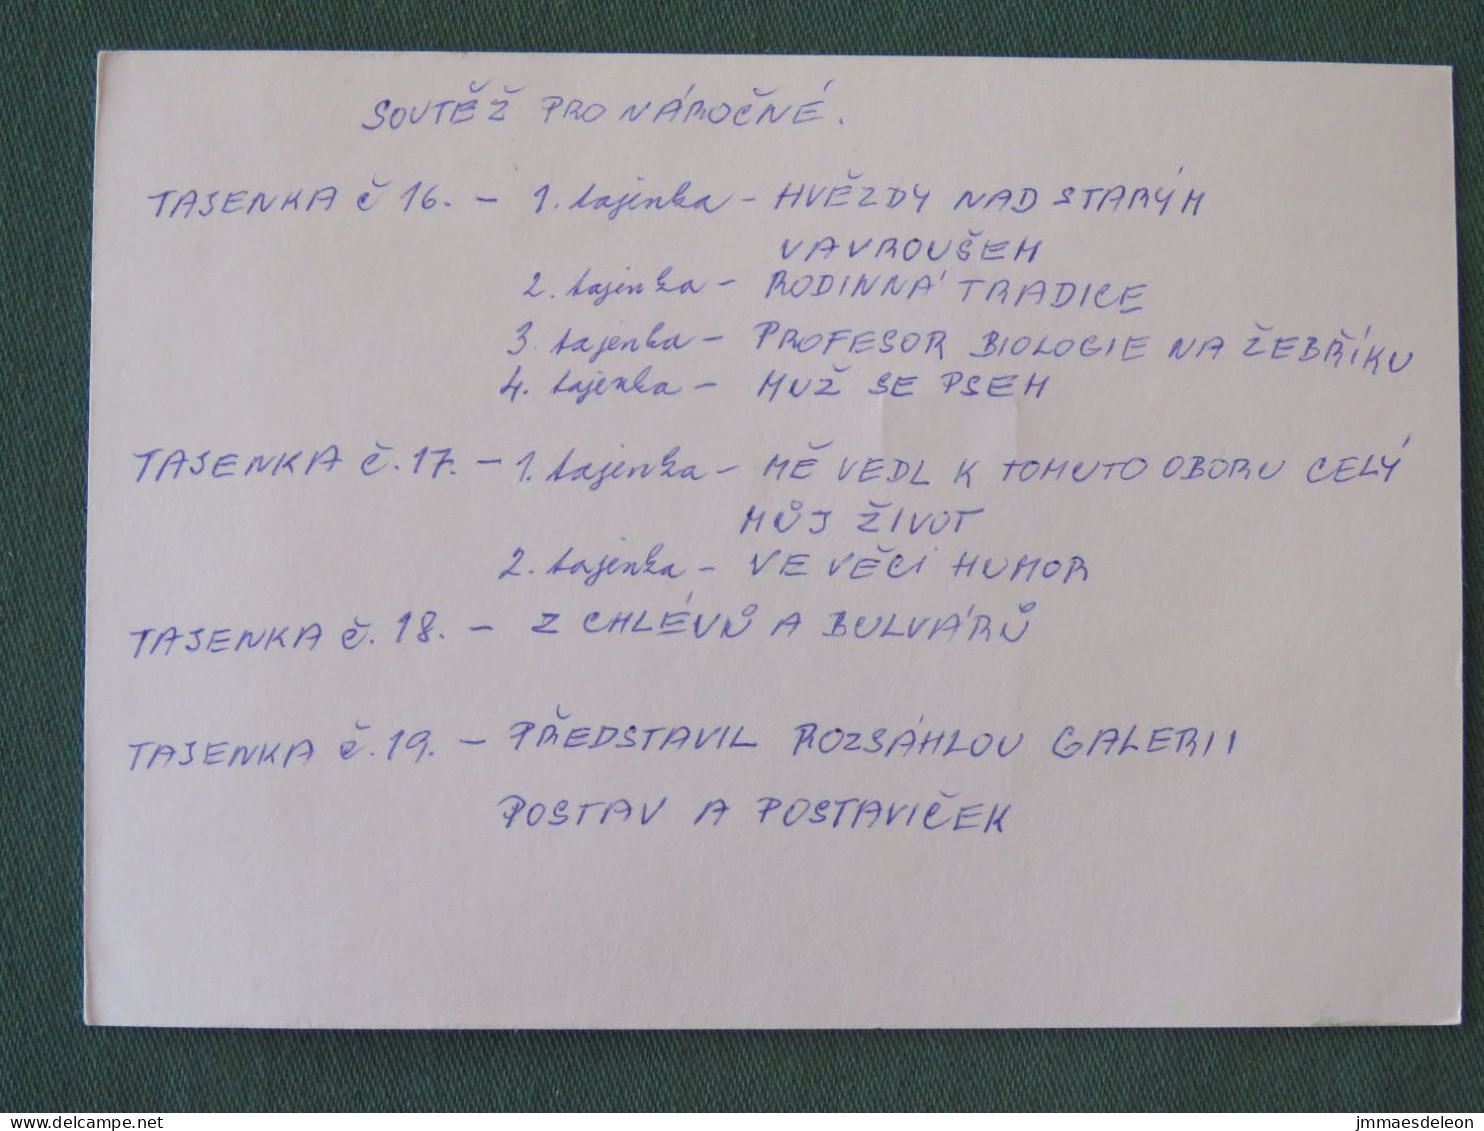 SOUTĚŽ PRO NÁROČNÉ.
TAJENKA č 16. - 1. tajenka - HVĚZDY NAD STARÝM
VAVROUŠEM
2. tajenka - RODINNÁ TRADICE
3. tajenka - PROFESOR BIOLOGIE NA ŽEBŘÍKU
4. tajenka - MUŽ SE PSEM
TAJENKA č. 17. - 1. tajenka - MĚ VEDL K TOMUTO OBORU CELÝ
MŮJ ŽIVOT
2. tajenka - VE VĚCI HUMOR
TAJENKA č. 18. - Z CHLÉVŮ A BULVÁRŮ
TAJENKA č. 19. - PŘEDSTAVIL ROZSÁHLOU GALERII
POSTAV A POSTAVIČEK
www.delcampe.net
jmmaesdeleon